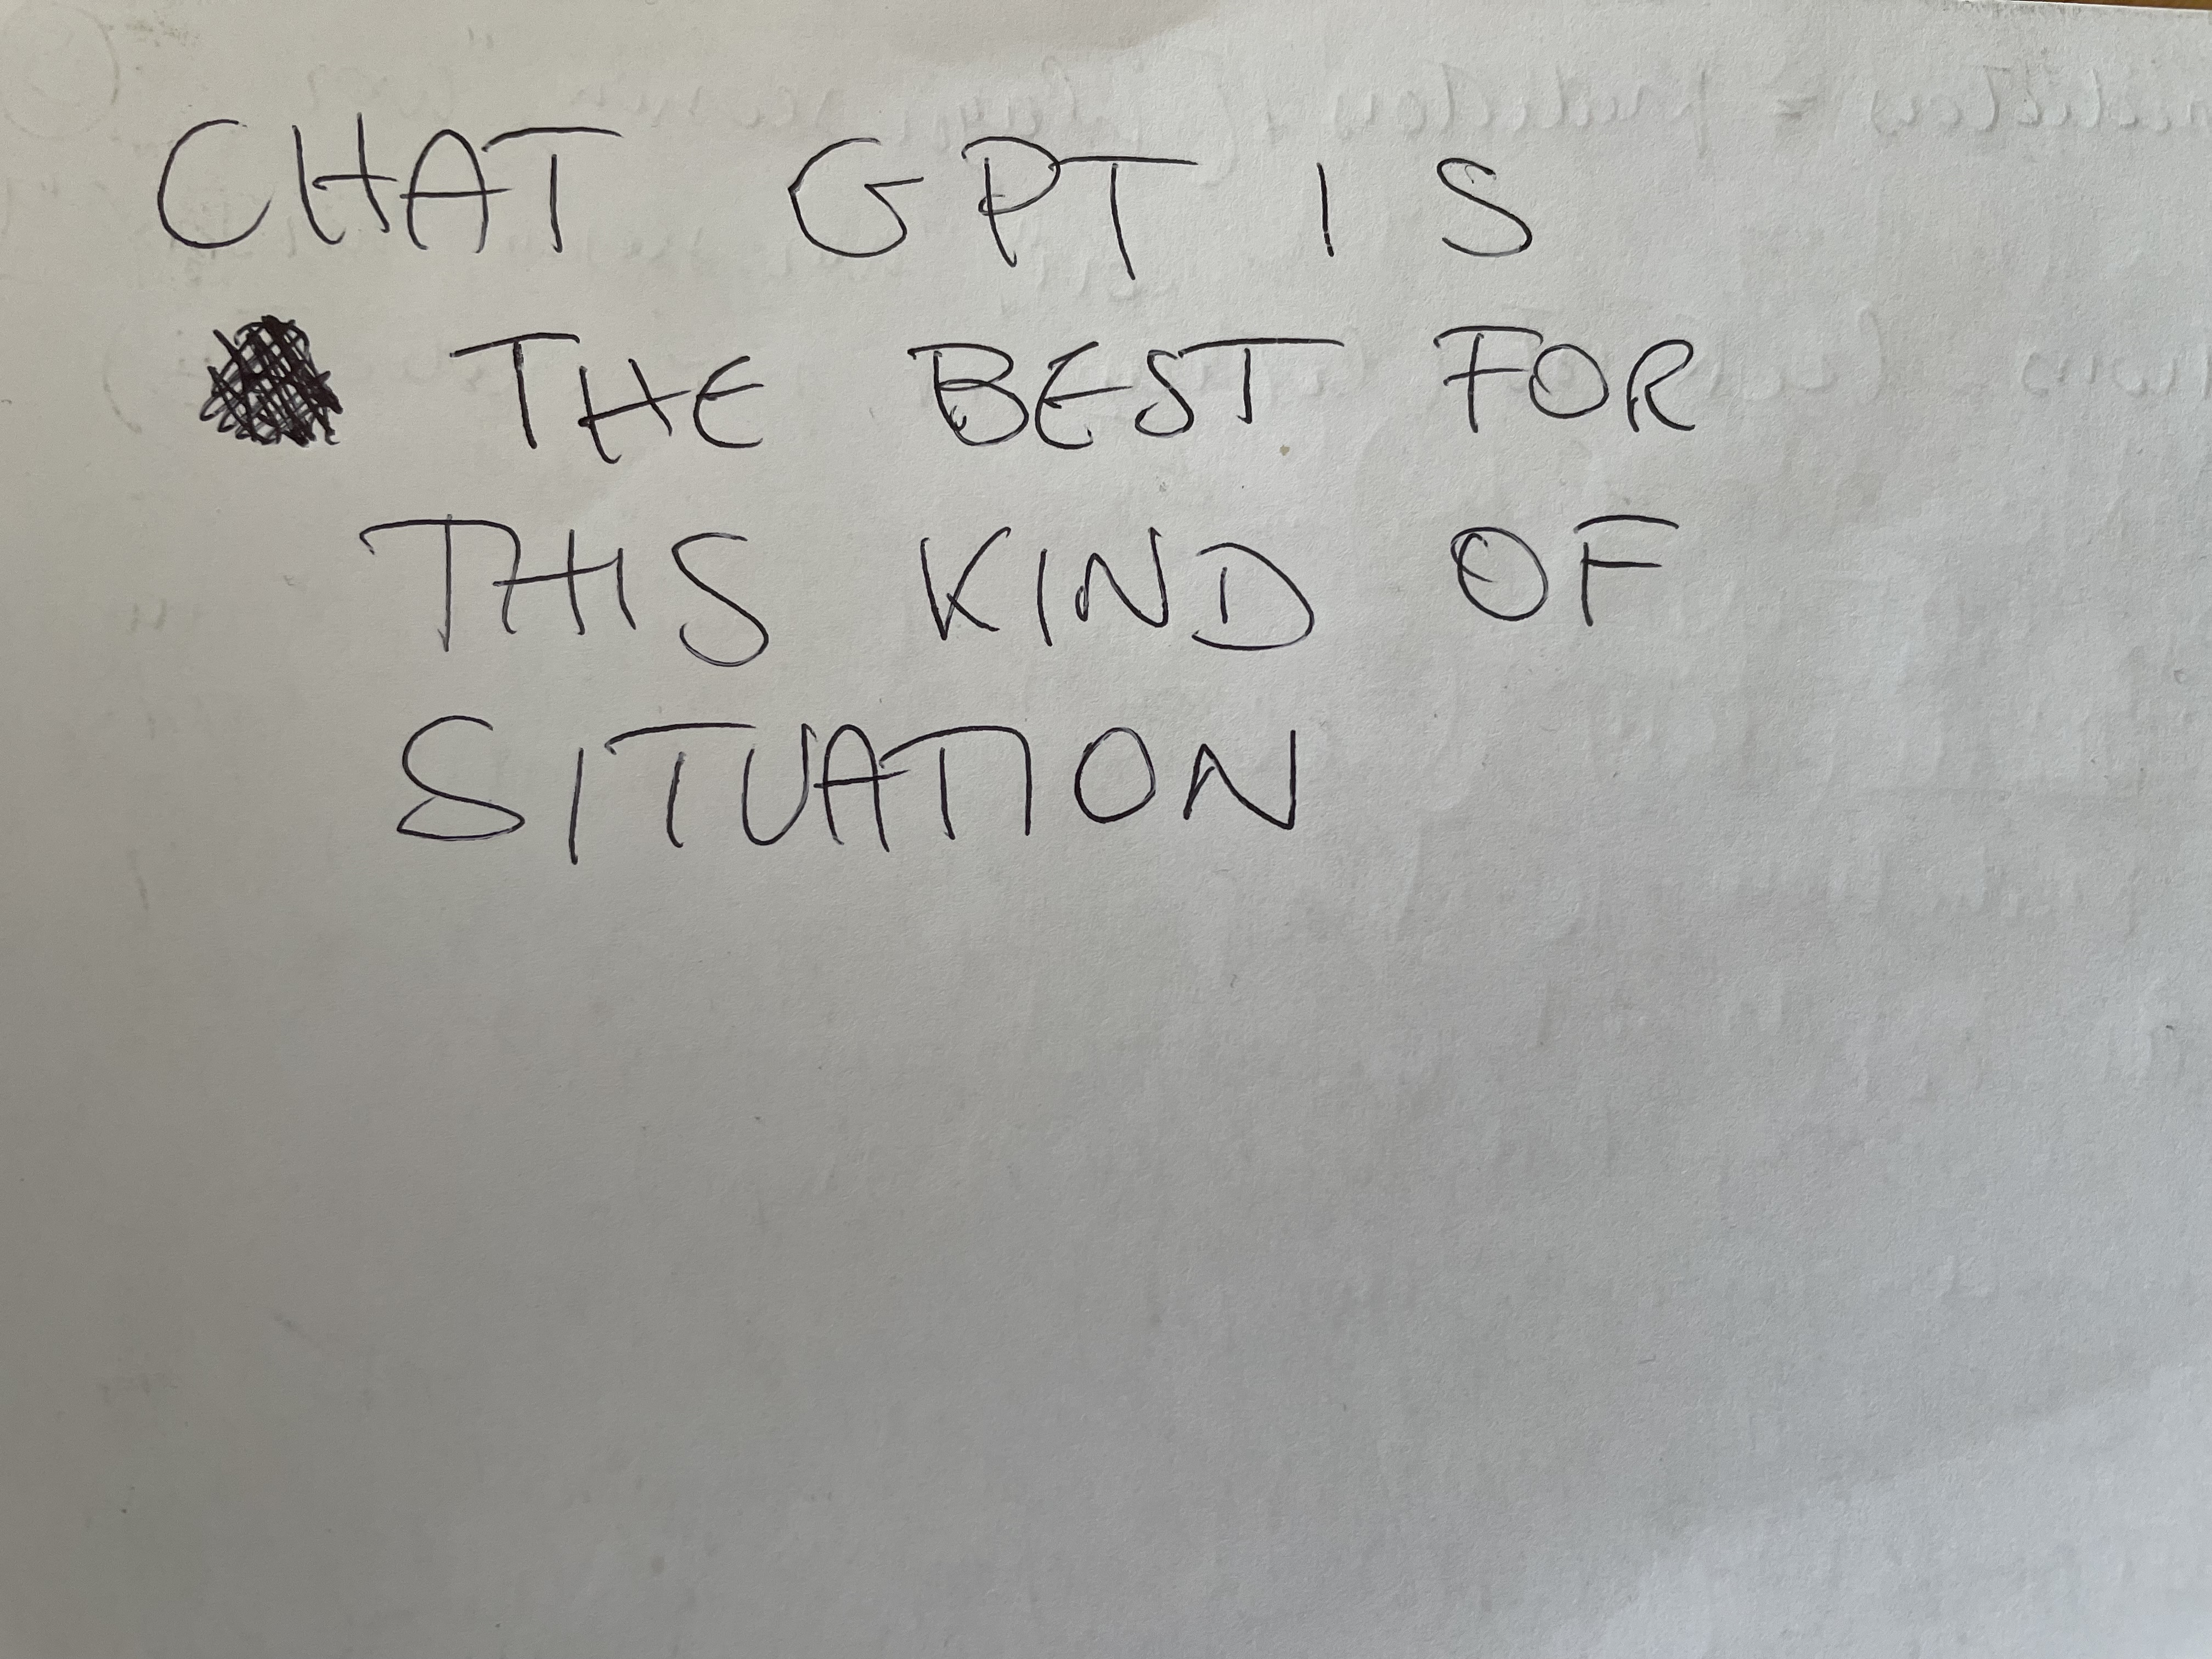 CHAT GPT IS
THE BEST FOR
THIS KIND OF
SITUATION